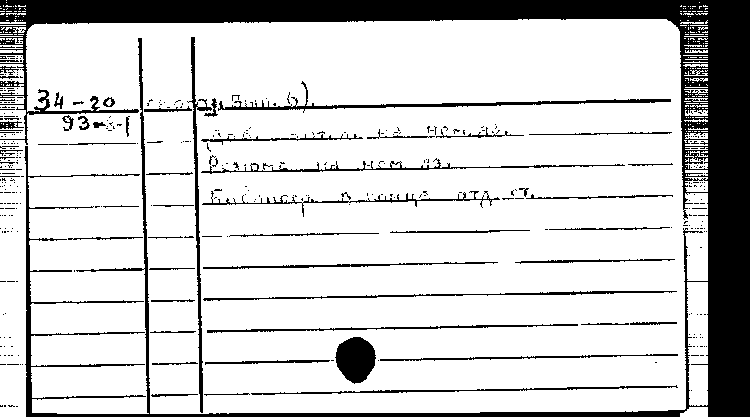 34-20 Вып. 6).
93-6-1
Доб. титл. на нем. яз.
Резюме на нем. яз.
Библиогр. в конце отд. ст.